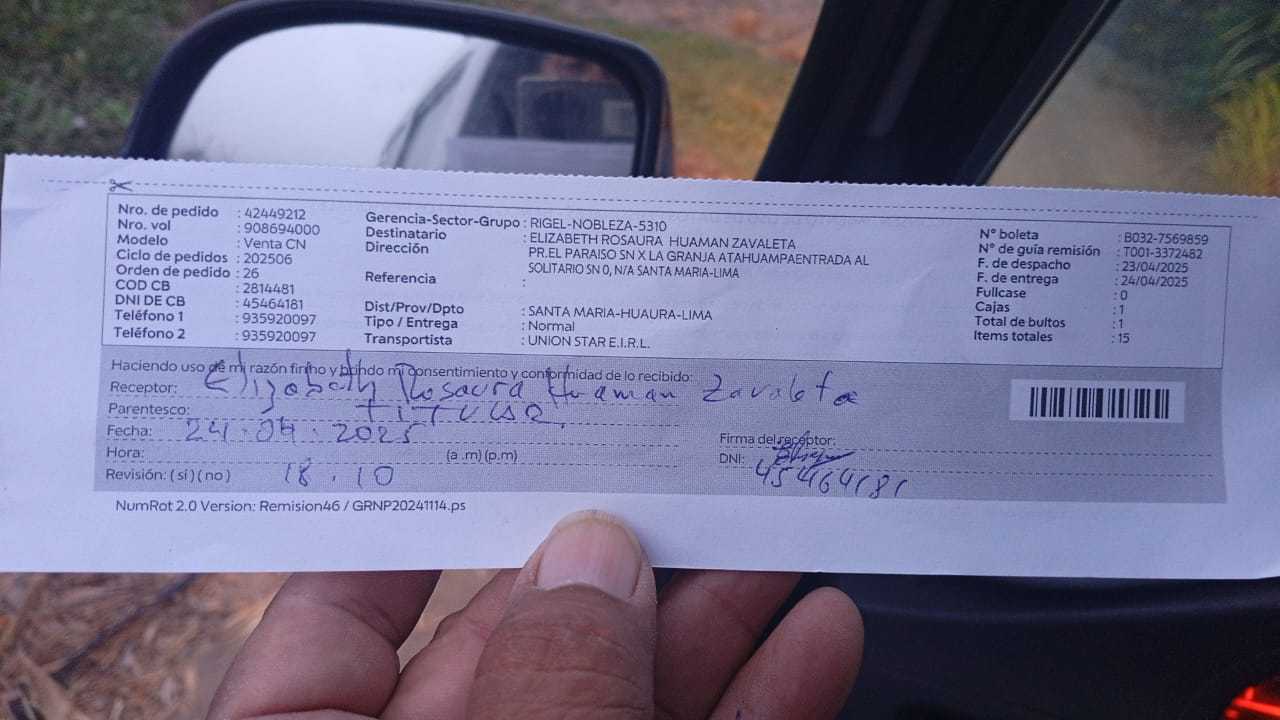 Nro. de pedido : 42449212
Nro. vol : 908694000
Modelo : Venta CN
Ciclo de pedidos : 202506
Orden de pedido : 26
COD CB : 2814481
DNI DE CB : 45464181
Teléfono 1 : 935920097
Teléfono 2 : 935920097
Gerencia-Sector-Grupo : RIGEL-NOBLEZA-5310
Destinatario : ELIZABETH ROSAURA HUAMAN ZAVALETA
Dirección PR.EL PARAISO SN X LA GRANJA ATAHUAMPAENTRADA AL
SOLITARIO SN 0, N/A SANTA MARIA-LIMA
Referencia :
Dist/Prov/Dpto : SANTA MARIA-HUAURA-LIMA
Tipo / Entrega : Normal
Transportista : UNION STAR E.I.R.L.
N° boleta : B032-7569859
N° de guía remisión : T001-3372482
F. de despacho : 23/04/2025
F. de entrega : 24/04/2025
Fullcase : 0
Cajas : 1
Total de bultos : 1
Items totales : 15
Haciendo uso de mi razón firmo y brindo mi consentimiento y conformidad de lo recibido:
Receptor: Elizabeth Rosaura Huaman Zavaleta
Parentesco: TITULAR
Fecha: 24.04.2025
Hora: (a .m) (p.m)
Revisión: ( si ) ( no ) 18.10
Firma del receptor:
DNI: 45464181
NumRot 2.0 Version: Remision46 / GRNP20241114.ps